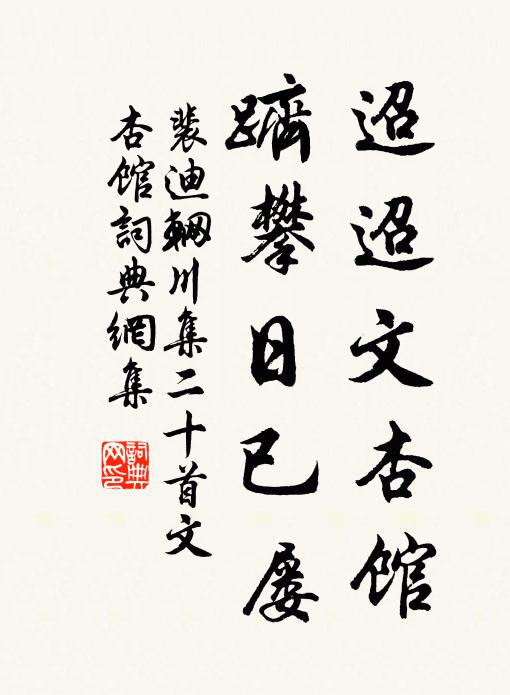 迢迢文杏館
躋攀日已屡
裴迪輞川集二十首文
杏館詞典網集
詞典
网印